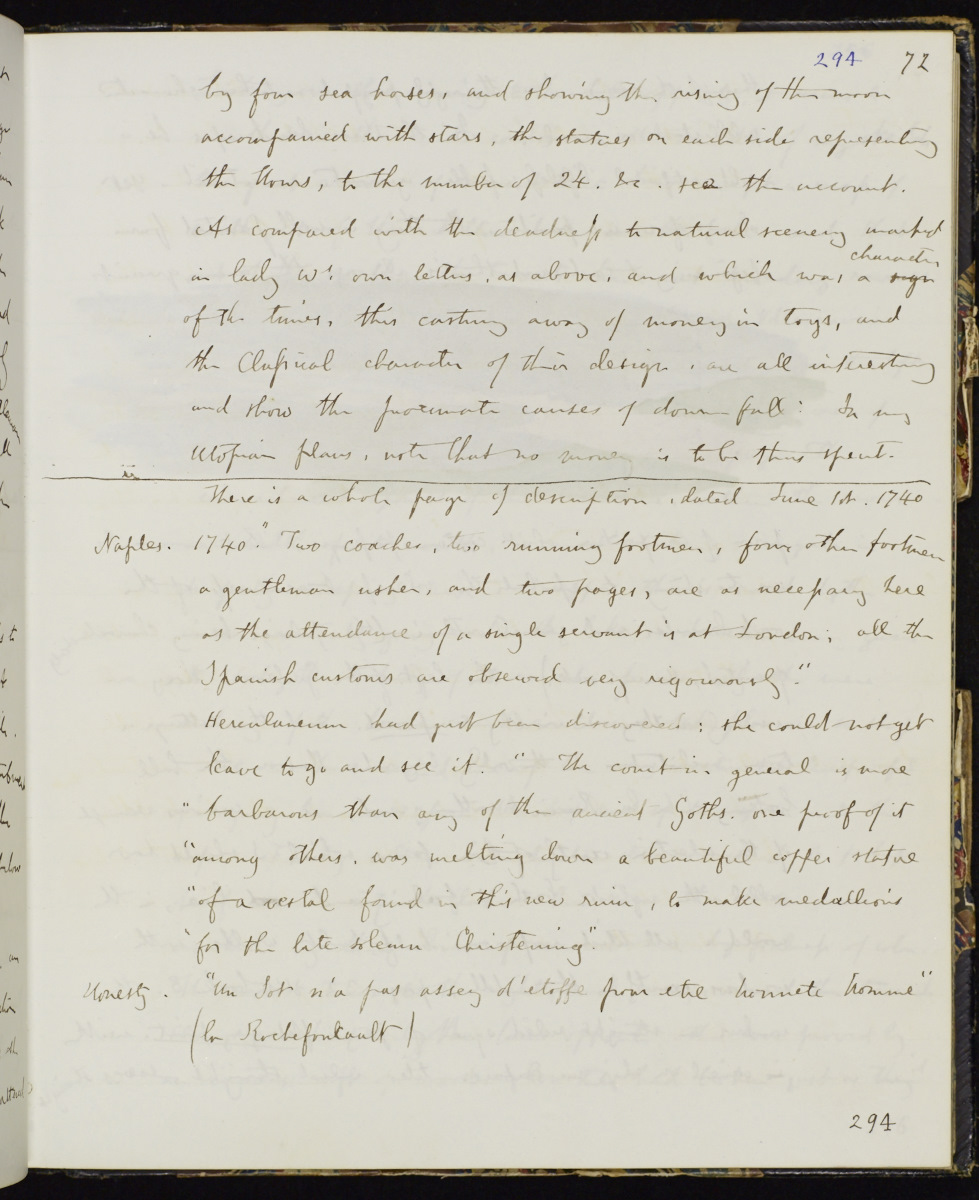 294 72
by four sea horses, and showing the rising of the moon
accompanied with stars, the statues on each side representing
the Hours, to the number of 24. &c. see the account.
As compared with the deadness to natural scenery marked
in lady Ws. own letters, as above, and which was a sign character
of the times, this casting away of money in toys, and
the Classical character of their design, are all interesting
and show the proximate causes of downfall: In my
Utopian plans, note that no money is to be thus spent.
There is a whole page of description, dated June 1st. 1740
Naples. 1740. "Two coaches, two running footmen, four other footmen
a gentleman usher, and two pages, are as necessary here
as the attendance of a single servant is at London; all the
Spanish customs are observed very rigourously."
Herculaneum had just been discovered: she could not get
leave to go and see it. "The court in general is more
"barbarous than any of the ancient Goths. one proof of it
"among others, was melting down a beautiful copper statue
"of a vestal found in this new ruin, to make medallions
"for the late solemn Christening".
Honesty. "Un Sot n'a pas assez d'etoffe pour etre honnete homme"
(la Rochefoucault)
294